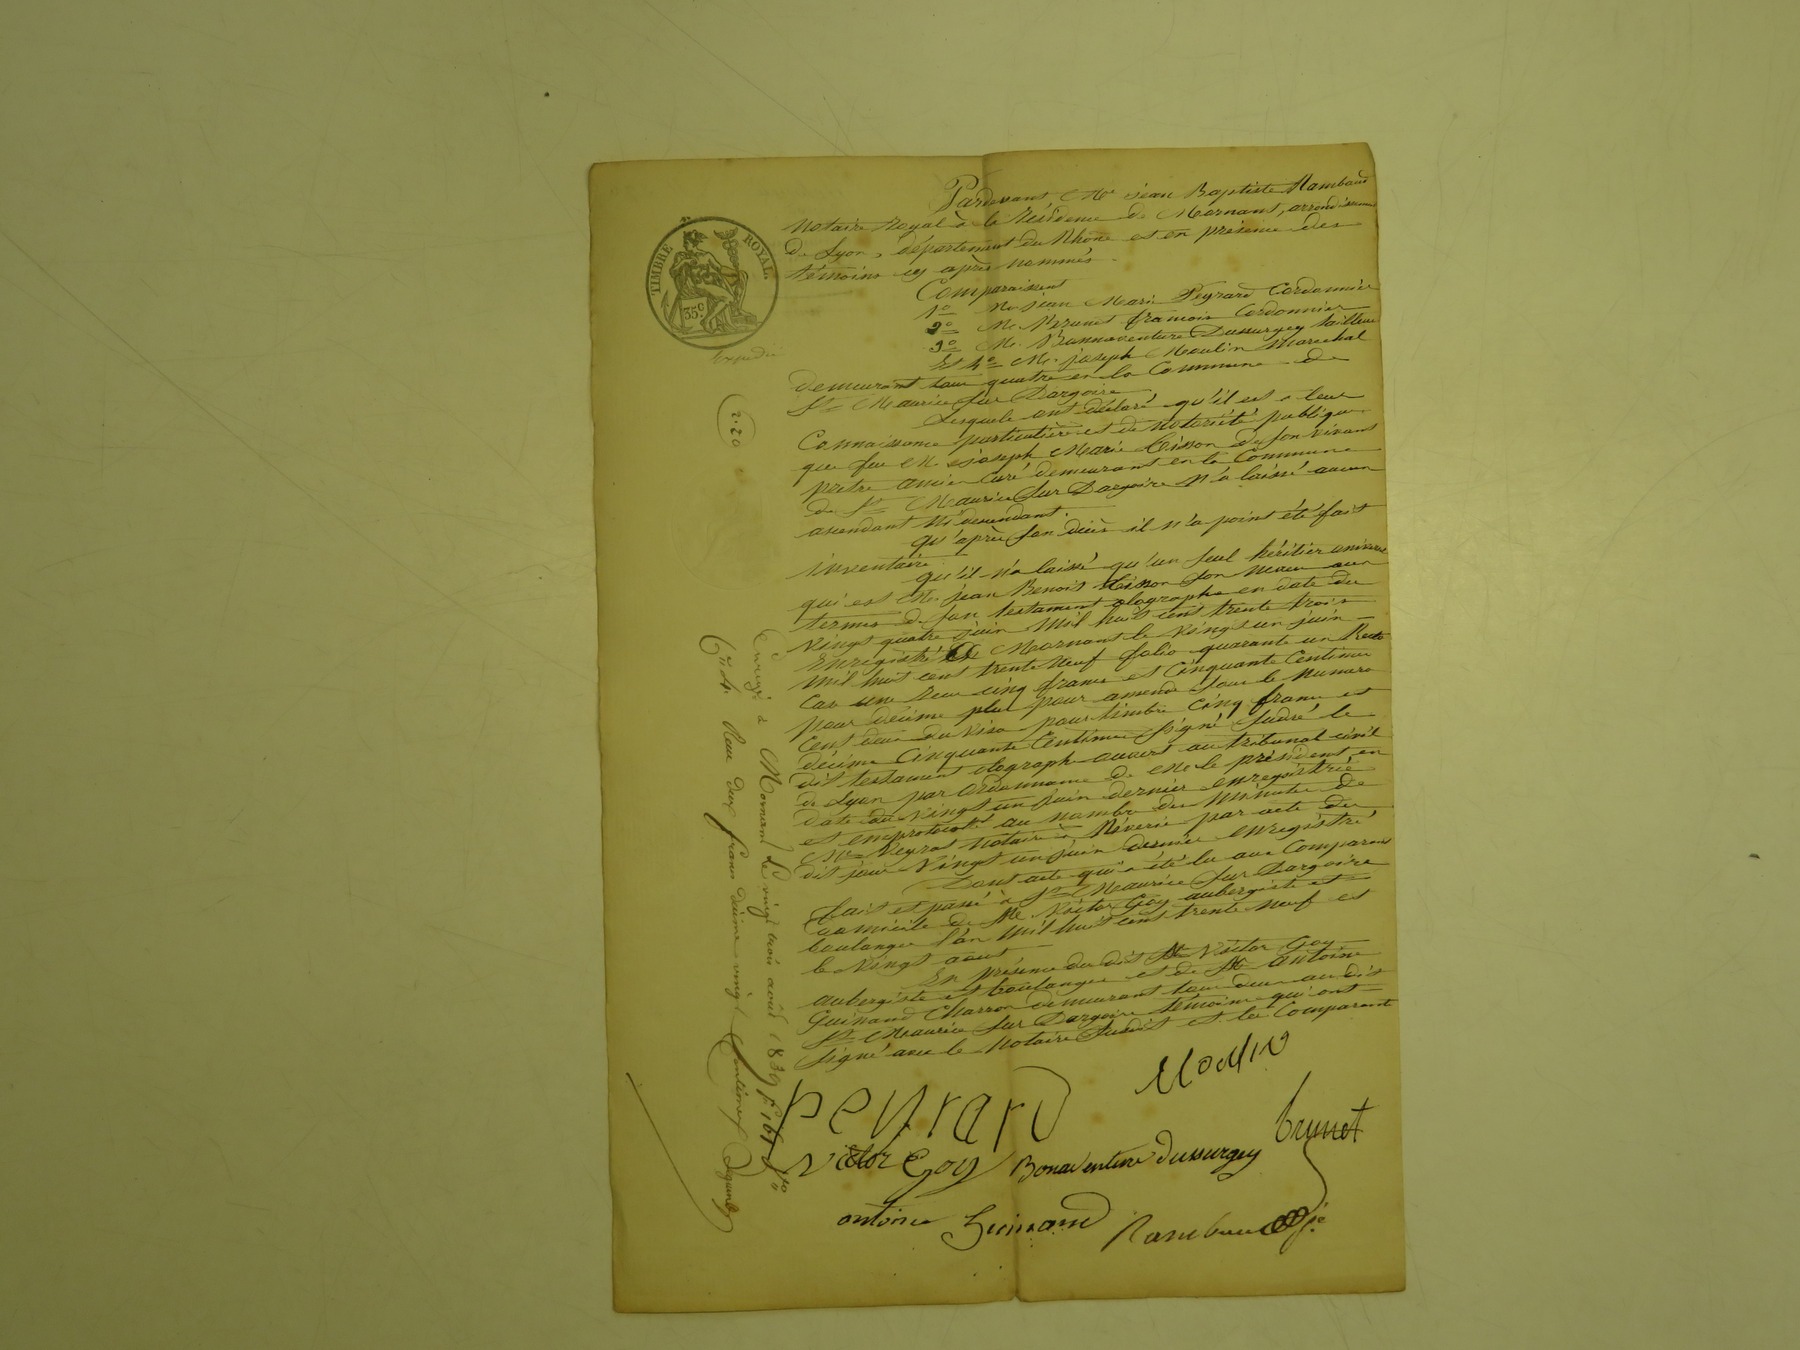 Pardevant Me jean Baptiste Rambaud
Notaire Royal à la Résidence de Mornant, arrondissement
De Lyon, département du Rhône et en présence des
témoins cy après nommés.
Comparaissent
1o Mr jean Marie Peyrard Cordonnier
2o Mr Brunet francois Cordonnier
3o Mr Bonnaventure Dussurgey tailleur
Et 4o Mr joseph Moulin Marechal
demeurant tous quatre en la Commune de
St Maurice sur Dargoire
Lesquels ont déclaré qu'il est a leur
Connaissance particulière et de notoriété publique
que feu Mr joseph Marie de son vivant
prêtre ancien Curé demeurant en la Commune
de St Maurice Sur Dargoire n'a laissé aucun
ascendant ni descendant.
qu'après son décès il n'a point été fait
inventaire.
qu'il n'a laissé qu'un seul héritier universel
qui est Mr jean Benoit son neveu aux
termes de son testament olographe en date du
vingt quatre juin mil huit cent trente trois
Enregistré à Mornant le vingt un juin
mil huit cent trente neuf folio quarante un Recto
Case une Reçu cinq francs et cinquante centimes
pour décime plus pour amende sous le numero
Cent deux du visa pour timbre cinq francs et
décime cinquante centimes signé le
dit testament olographe ouvert au tribunal civil
de Lyon par ordonnance de Mr le président en
date du vingt un juin dernier enregistré
et emprotocolé au nombre des minutes de
Me Notaire à Riverie par acte du
dit jour vingt un juin dernier enregistré
Dont acte qui a été lu aux Comparans
fait et passé à St Maurice Sur Dargoire
domicile de Mr Victor Goy aubergiste et
boulanger l'an mil huit cent trente neuf et
le vingt aout
En présence du dit Mr Victor Goy
aubergiste et boulanger et de Mr Antoine
Guinand Charron demeurant tous deux au dit
St Maurice sur Dargoire témoins qui ont
signé avec le Notaire susdit et les Comparant
Moulin
Peyrard
brunet
Victor Goy Bonaventure Dussurgey
antoine Guinand Rambaud
TIMBRE ROYAL
35c.
Expédié
2.20
Enregé à Mornant le vingt trois août 1839 fo 161 Vo
C 4. Reçu deux francs décime vingt Centimes